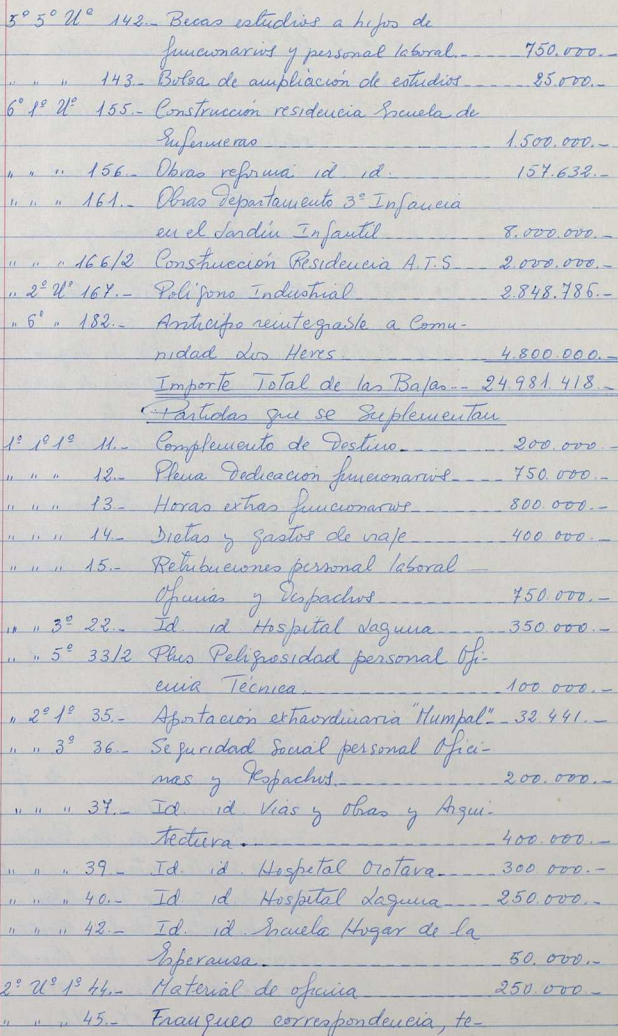 5º 5º Uº 142.- Becas estudios a hijos de
funcionarios y personal laboral 750.000.-
" " " 143.- Bolsa de ampliación de estudios 25.000.-
6º 1º Uº 155.- Construcción residencia Escuela de
Enfermeras 1.500.000.-
" " " 156.- Obras reforma id id. 157.632.-
" " " 161.- Obras departamento 3ª Infancia
en el Jardín Infantil 8.000.000.-
" " " 166/2 Construcción Residencia A.T.S 2.000.000.-
" 2º Uº 167.- Polígono Industrial 2.848.786.-
" 6º " 182.- Anticipo reintegrable a Comu-
nidad Los Heres 4.800.000.-
Importe Total de las Bajas-- 24.981.418.-
Partidas que se Suplementan
1º 1º 1º 11.- Complemento de Destino. 200.000.-
" " " 12.- Plena Dedicación funcionarios 750.000.-
" " " 13.- Horas extras funcionarios 800.000.-
" " " 14.- Dietas y gastos de viaje 400.000.-
" " " 15.- Retribuciones personal laboral
Oficinas y Despachos 750.000.-
" " 3º 22.- Id. id Hospital Laguna 350.000.-
" " 5º 33/2 Plus Peligrosidad personal Ofi-
cina Técnica 100.000.-
" 2º 1º 35.- Aportación extraordinaria "Mumpal" 32.441.-
" " 3º 36.- Seguridad Social personal Ofici-
nas y Despachos 200.000.-
" " " 37.- Id. id Vias y Obras y Arqui-
tectura. 400.000.-
" " " 39 - Id. id. Hospital Orotava 300.000.-
" " " 40.- Id. id Hospital Laguna 250.000.-
" " " 42.- Id. id. Escuela Hogar de la
Esperansa. 50.000.-
2º Uº 1º 44.- Material de oficina 250.000.-
" " " 45.- Franqueo correspondencia, te-